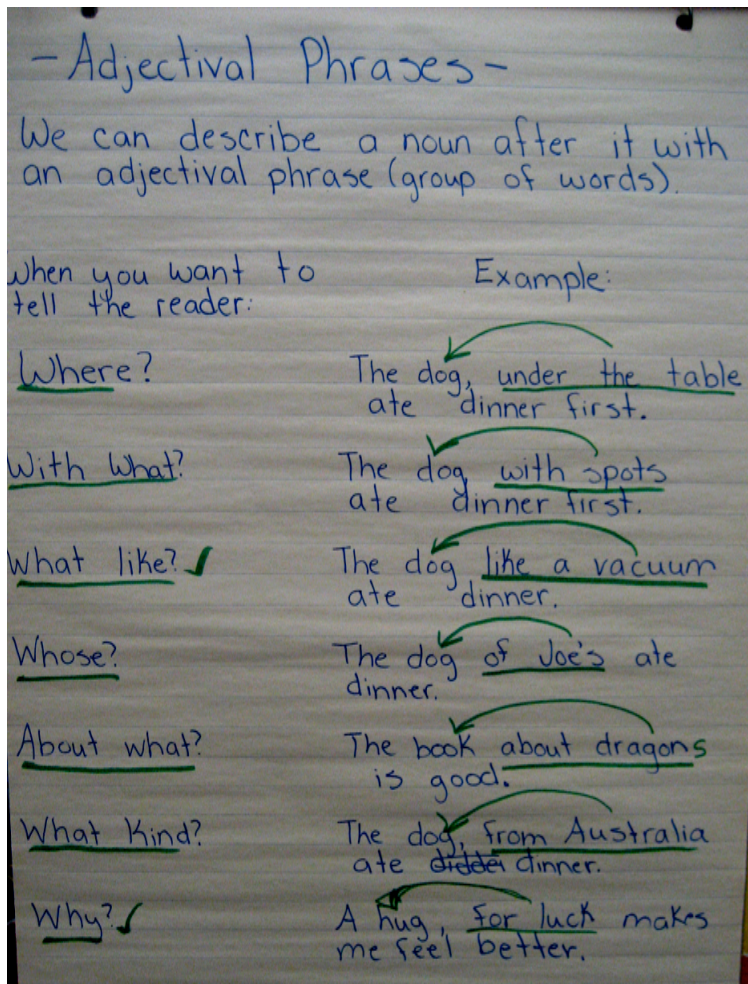 -Adjectival Phrases-
We can describe a noun after it with
an adjectival phrase (group of words).
when you want to
tell the reader:
Example:
Where?
The dog, under the table
ate dinner first.
With What?
The dog with spots
ate dinner first.
What like? ✓
The dog like a vacuum
ate dinner.
Whose?
The dog of Joe's ate
dinner.
About what?
The book about dragons
is good.
What Kind?
The dog, from Australia
ate dinner.
Why? ✓
A hug, for luck makes
me feel better.